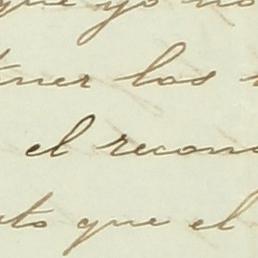 que yo no
tener los
el recono
to que el